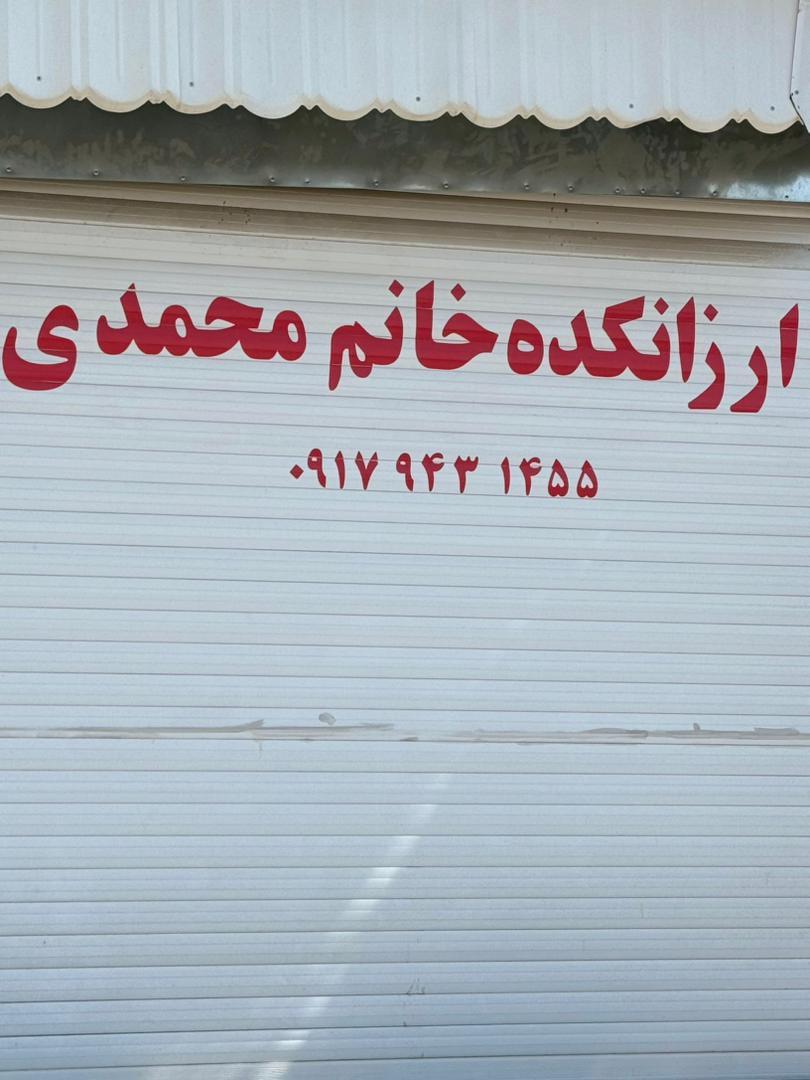 ارزانکده خانم محمدی
۰۹۱۷ ۹۴۳ ۱۴۵۵